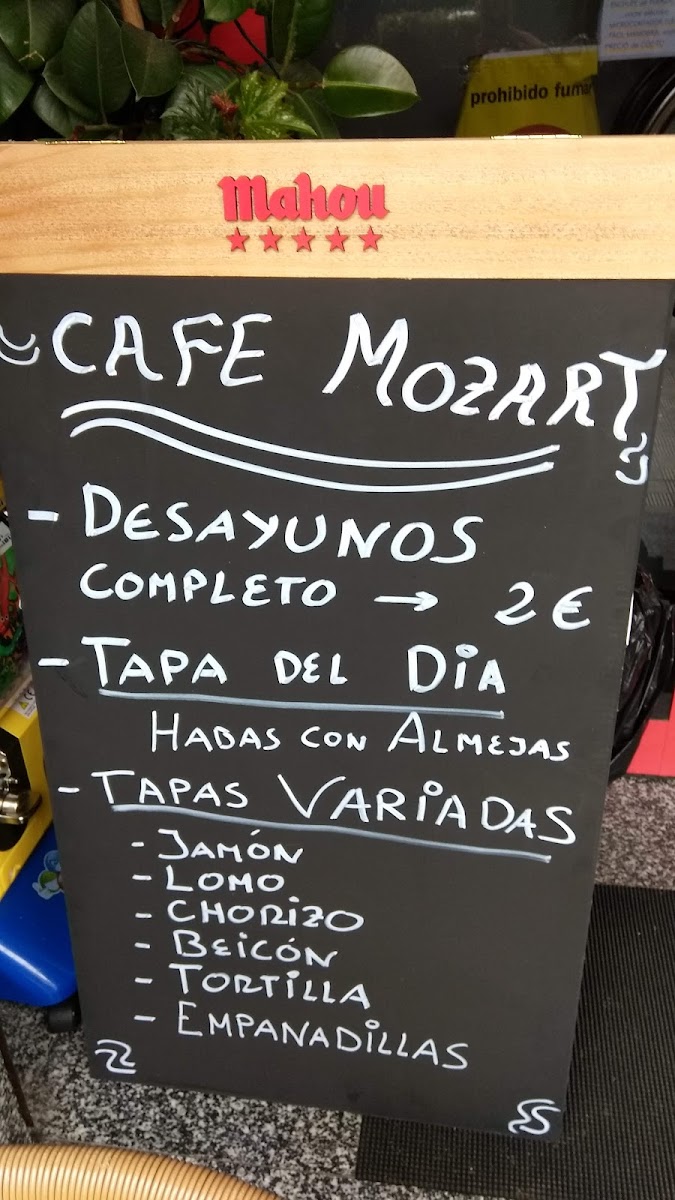 prohibido fumar
Mahou
CAFE MOZART
- DESAYUNOS
COMPLETO → 2€
- TAPA DEL DiA
HABAS CON ALMEJAS
- TAPAS VARiADAS
- JAMÓN
- LOMO
- CHORiZO
- BEiCÓN
- TORTiLLA
- EMPANADiLLAS